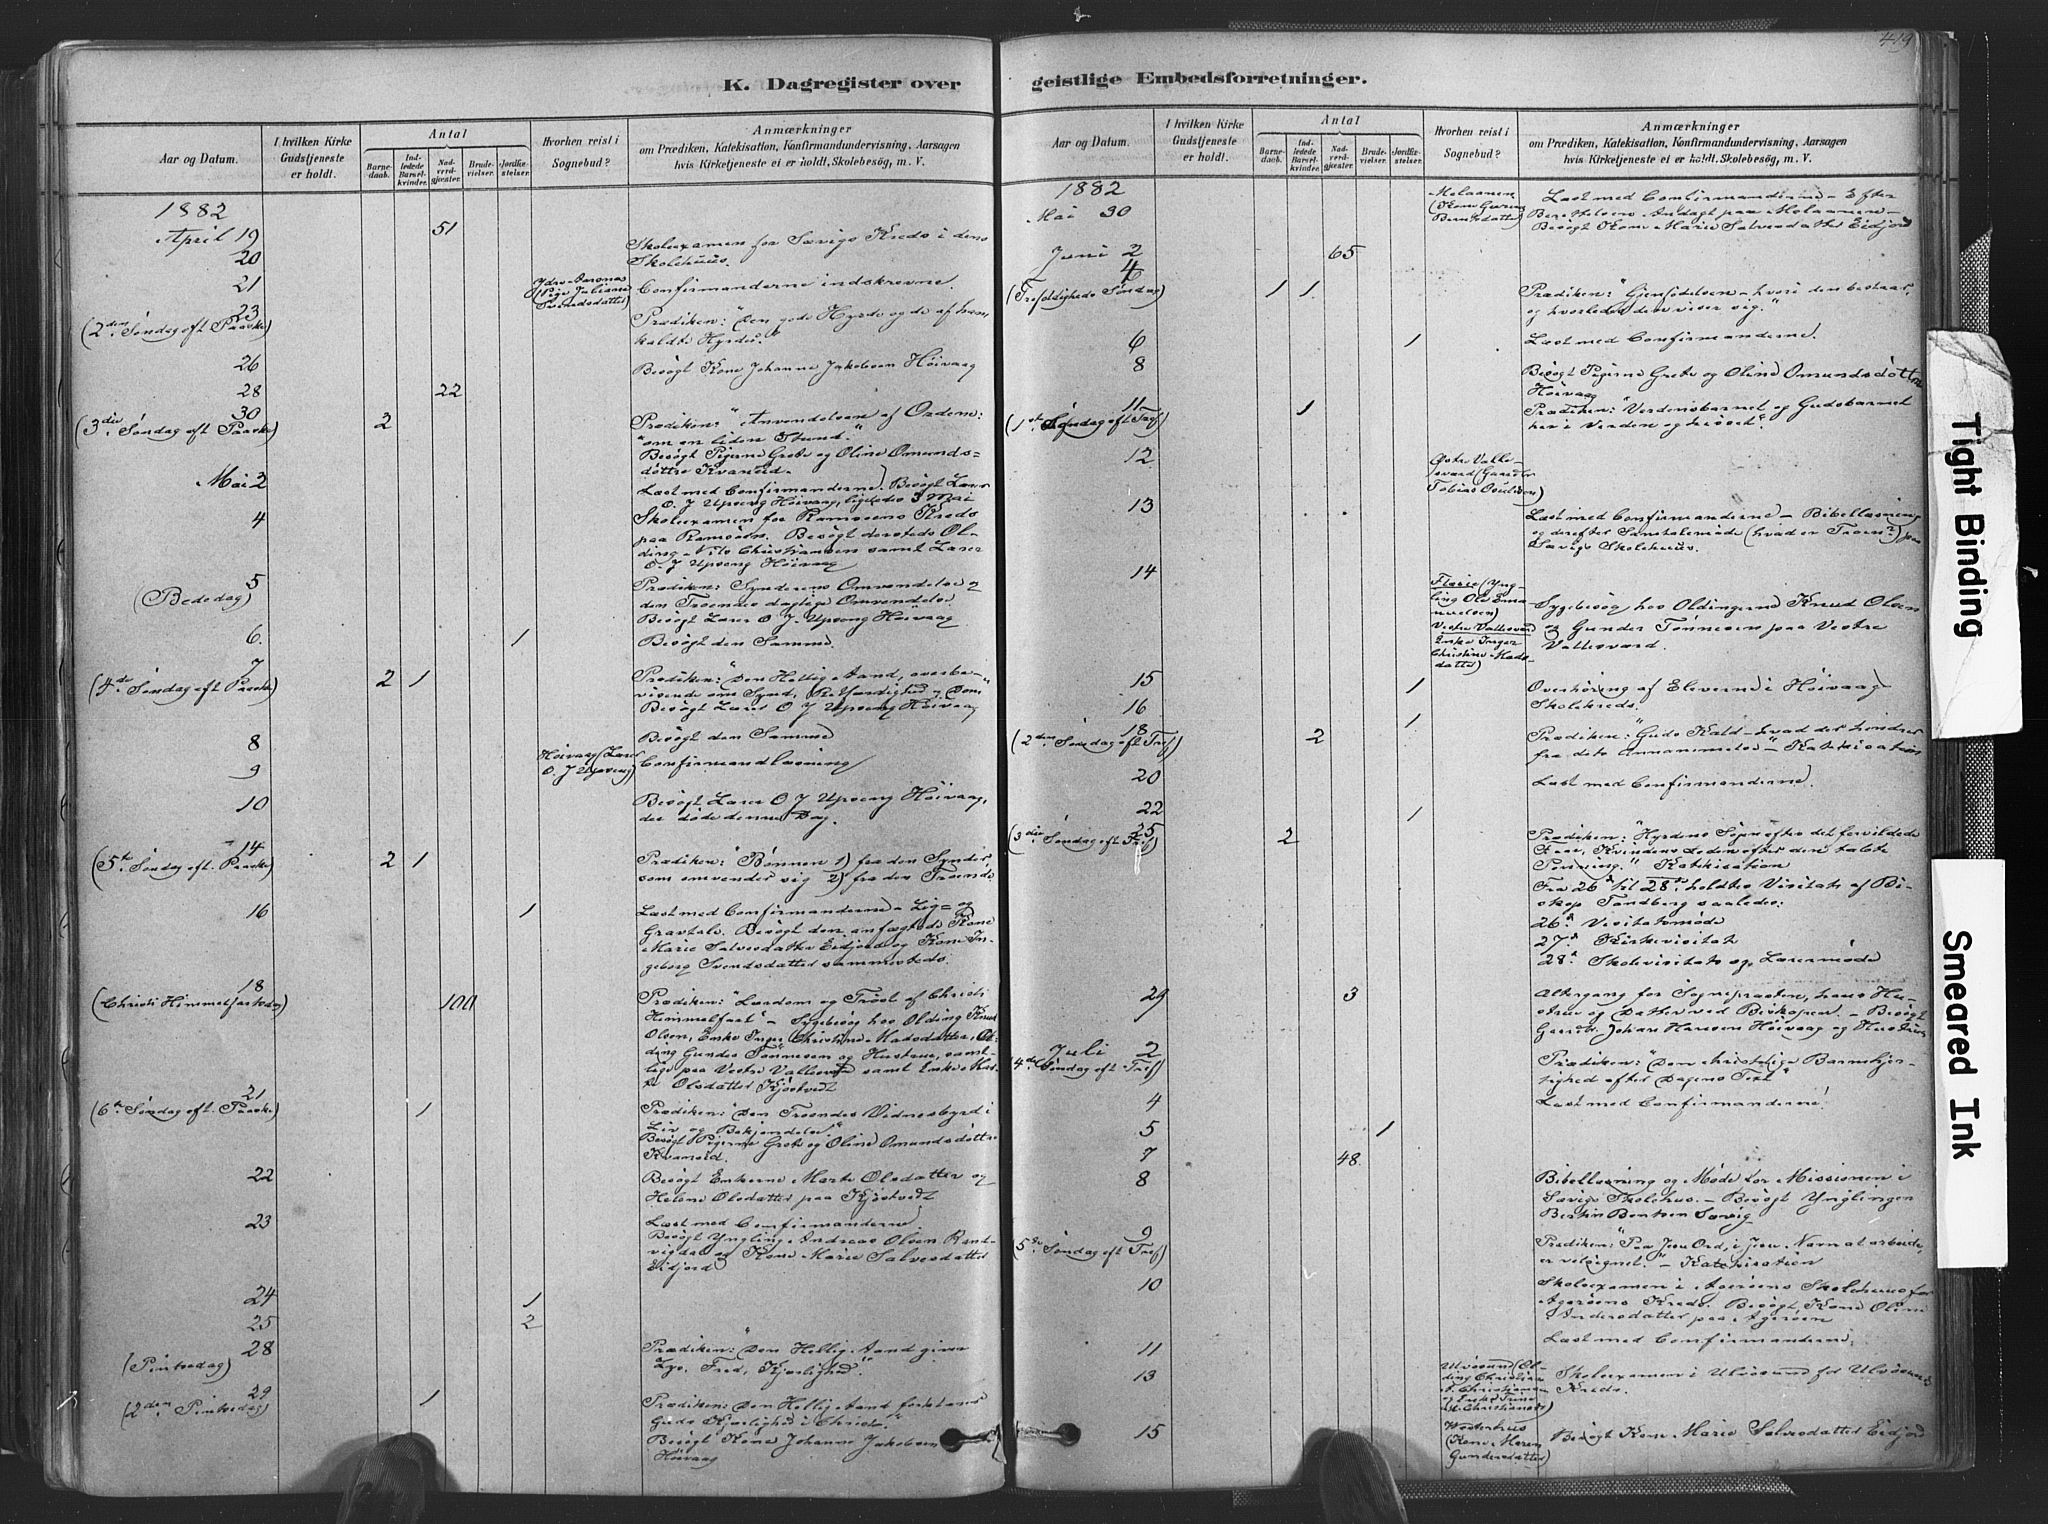 K. Dagregister over
Aar og Datum.
I hvilken Kirke Gudstjeneste er holdt.
Antal
Barnedaab.
Indledede Barselkvinder.
Nadverdgjester.
Brudevielser.
Jordfæstelser.
Hvorhen reist i Sognebud?
Anmærkninger
om Prædiken, Katekisation, Konfirmandundervisning, Aarsagen
hvis Kirketjeneste ei er holdt, Skolebesøg, m. V.
1882
April 19 51
20 Skoleexamen for Sævigs Kreds i dens
Skolehuus.
21 Confirmanderne indskrevne.
(Pige Juliane
Svendsdatter)
23
(2den Søndag eft. Paaske) Prædiken: "Den gode Hyrde og de af ham
kaldte Hyrder."
26 Besøgt Kone Johanne Jakobsen Høivaag
28 22
30
(3die Søndag eft. Paaske) 2 Prædiken: "Anvendelsen af Ordene:
"om en liden Stund."
Besøgt Pigerne Grete og Oline Omunds-
døttre Kvaneid.
Mai 2 Læst med Confirmanderne. Besøgt Lærer
O. J. Upseng Høivaag, ligeledes 3 Mai
4 Skoleexamen for Ramsøens Kreds
paa Ramsøen. Besøgt dersteds Ol-
ding Nils Christiansen samt Lærer
O. J. Upseng Høivaag
5
(Bededag) Prædiken: Synderens Omvendelse og
den Troendes daglige Omvendelse
Besøgt Lærer O. J. Upseng Høivaag
6. 1 Besøgt den Samme.
7
(4de Søndag eft. Paaske) 2 1 Prædiken: "Den Hellig Aand, overbe-
visende om Synd, Retfærdighed og Dom"
Besøgt Lærer O J Upseng Høivaag
8 Besøgt den Samme
9 Høivaag (Lærer
O. J Upseng) Confirmandlæsning
10 Besøgt Lærer O J Upseng Høivaag,
der døde denne Dag.
14
(5te Søndag eft. Paaske) 2 1 Prædiken: "Bønnen 1) fra den Synder
som omvender sig 2) fra den Troende
16 1 Læst med Confirmanderne. Lig- og
Gravtale. Besøgt den anfægtede Kone
Marie Salvesdatter Eidjord og Kone In-
geborg Svendsdatter sammesteds.
18
(Christi Himmelfartsdag) 100 Prædiken: "Lærdom og Trøst af Christi
Himmelfart" - Sygebesøg hos Olding Knud
Olsen, Enke Inger Christine Madsdatter, Ol-
ding Gunder Tønnesen og Hustrue, samt-
lige paa Vestre Vallesværd samt Enke Mar-
te Olsdatter Kjøstvedt
21
(6te Søndag eft. Paaske) 1 Prædiken: "Den Troendes Vidnesbyrd i
Liv og Bekjendelse"
Besøgt Pigerne Grete og Oline Omundsdøttre
Kvaneid.
22 Besøgt Enkerne Marte Olsdatter og
Helene Olsdatter paa Kjøstvedt
23 Læst med Confirmanderne
Besøgt Yngling Andreas Olsen Rand-
vigdal og Kone Marie Salvesdatter
Eidjord
24 1
25 2
28
(Pintsedag) Prædiken: "Den Hellig Aand giver
Lys, Fred, Kjærlighed".
29
(2den Pintsedag) 1 Prædiken: "Den Hellig Aand forklarer
Guds Kjærlighed i Christo"
Besøgt Kone Johanne Jakobsen
Høivaag
419
geistlige Embedsforretninger.
Aar og Datum.
I hvilken Kirke Gudstjeneste er holdt.
Antal
Barnedaab.
Indledede Barselkvinder.
Nadverdgjester.
Brudevielser.
Jordfæstelser.
Hvorhen reist i Sognebud?
Anmærkninger
om Prædiken, Katekisation, Konfirmandundervisning, Aarsagen
hvis Kirketjeneste ei er holdt, Skolebesøg, m. V.
1882
Mai 30 Læst med Confirmanderne - Efter
Andagt paa
Besøgt Kone Marie Salvesdatter Eidjord
Juni 2 65
4
(Trefoldigheds Søndag) 1 1 Prædiken: "Gjenfødelsen - hvori den bestaar,
og hvorledes den viser sig."
6 1 Læst med Confirmanderne.
8 Besøgt Pigerne Grete og Oline Omundsdøttre
Høivaag
11
(1ste Søndag eft Tref) 1 Prædiken: "Verdensbarnet og Gudsbarnet
her i Verden og hisset"
12 Østre Valle-
sværd (Gaardm
Tobias
13 Læst med Confirmanderne - Bibellæsning
og derefter Samtalemøde (hvad er Troen?) paa
Sævigs Skolehuus.
14 (Yng
ling Ole Ema
nuelsen)
Vestre Vallesværd
Enke Inger
Christine Mads-
datter) Sygebesøg hos Oldingerne Knud Olsen
og Gunder Tønnesen paa Vestre
Vallesværd.
15 1 Overhøring af Eleverne i Høivaag
Skolekreds.
16 1
18
(2den Søndag eft Tref) 2 Prædiken: "Guds Kald - hvad der hindrer
fra dets Annammelse" - Katekisation
20 Læst med Confirmanderne.
22 1
25
(3die Søndag eft Tref) 2 Prædiken: "Hyrdens Søgen efter det forvildede
Faar, Kvindens Leden efter den tabte
Penning." Katekisation
Fra 26de til 28de holdtes Visitats af Bi-
skop Tandberg saaledes:
26de Visitatsmøde
27de Kirkevisitats
28de Skolevisitats og Lærermøde
29 3 Altergang for Sognepræsten, hans Hu-
strue og Datter ved Biskopen. - Besøgt
Gaardbr. Johan Hansen Høivaag og Hustrue
Juli 2
(4de Søndag eft Tref) Prædiken: "Den christelige Barmhjer-
tighed efter Dagens Text"
4 Læst med Confirmanderne!
5 1
7 48
8 Bibellæsning og Møde for Missionen i
Sævigs Skolehus. - Besøgt Ynglingen
Berten Bentsen Sævig
9
(5te Søndag eft Tref) Prædiken: "Paa Jesu Ord, i Jesu Navn at arbeide,
er velsignet. - Katekisation
10 Skoleexamen i Agerøens Skolehuus for
Agerøens Kreds. Besøgt Kone Oline
Andersdatter paa Agerøen
11 Læst med Confirmanderne
13 Ulvøsund (Ol-
ding Christian
A. Christiansen
og Enke Trine
Christiansen) Skoleexamen i Ulvøsund for Ulvøsunds
Kreds.
15 Westerhus
(Kone Maren
Gundersdatter) Besøgt Kone Marie Salvesdatter Eidjord
Tight Binding
Smeared Ink